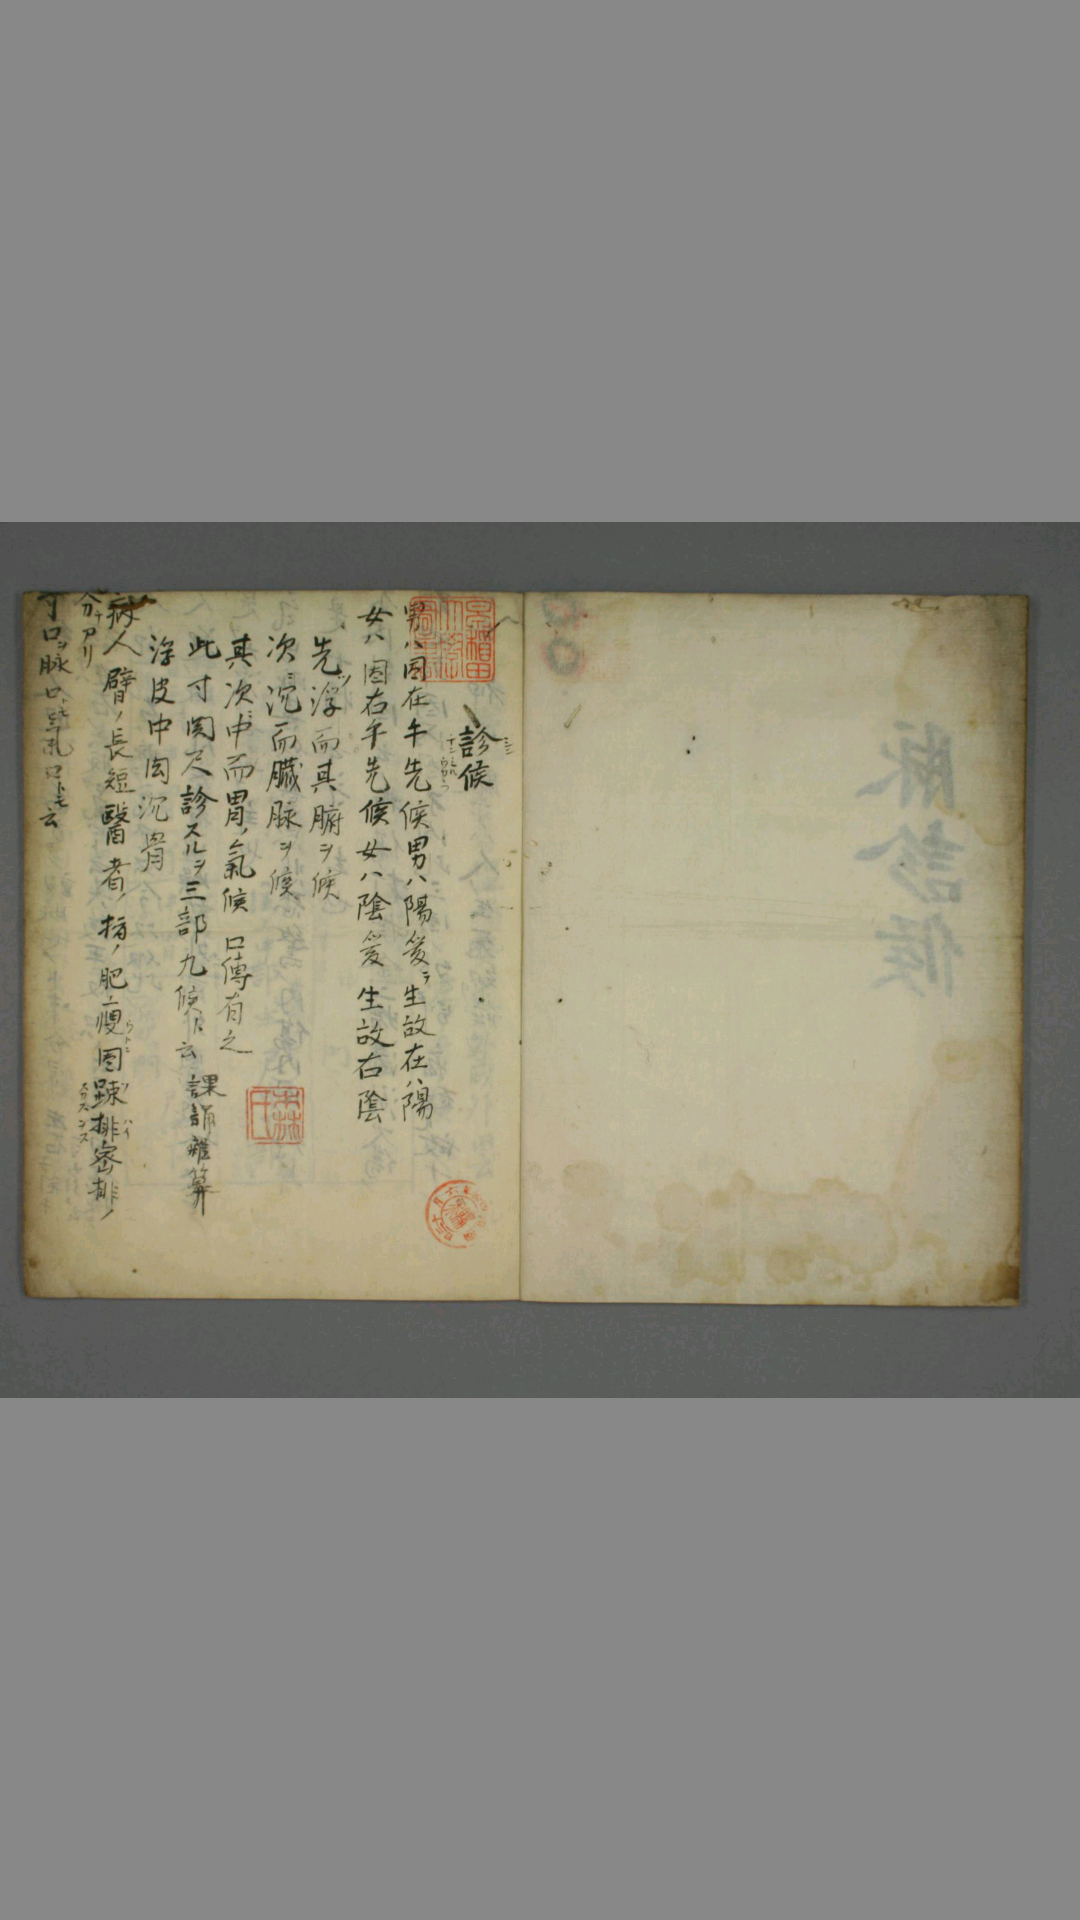 脉診候
診候
男ハ因在午先候男ハ陽爰ヲ生故在ハ陽
女ハ因右手先候女ハ陰爰生故右陰
先ツ浮而其腑ヲ候
次ニ沉而臓脉ヲ候
其次ニ中而胃ノ氣候 口傳有之
此寸関尺診スルヲ三部九候ト云 課誦難算
浮皮中肉沉骨
病人臂ノ長短醫者ノ指ノ肥瘦因踈排密排ノ
分アリ
寸口ヲ脉口トモ気口トモ云